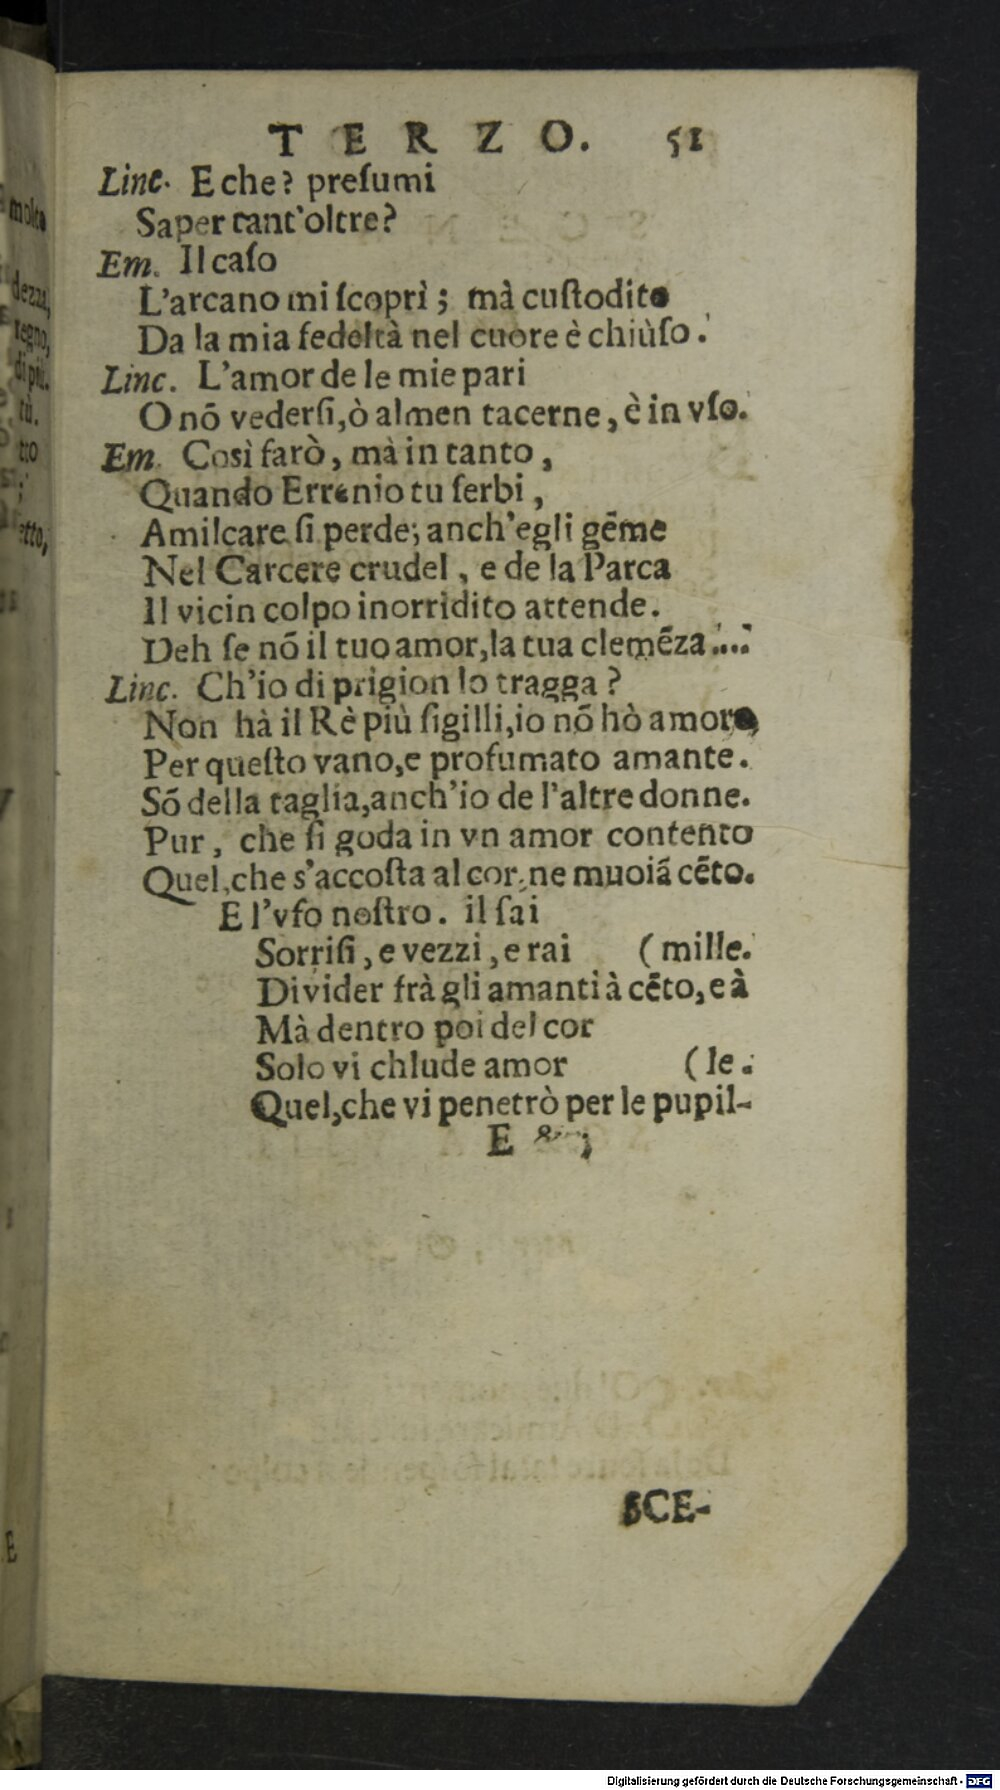 TERZO. 51
Linc. E che? preſumi
Saper tant'oltre?
Em. Il caſo
L'arcano mi ſcoprì; mà cuſtodito
Da la mia fedeltà nel cuore è chiùſo.
Linc. L'amor de le mie pari
O nõ vederſi, ò almen tacerne, è in vſo.
Em. Così farò, mà in tanto,
Quando Errenio tu ſerbi,
Amilcare ſi perde; anch'egli gẽme
Nel Carcere crudel, e de la Parca
Il vicin colpo inorridito attende.
Deh ſe nõ il tuo amor, la tua clemẽza....
Linc. Ch'io di prigion lo tragga?
Non hà il Rè più ſigilli, io nõ hò amore
Per queſto vano, e profumato amante.
Sõ della taglia, anch'io de l'altre donne.
Pur, che ſi goda in vn amor contento
Quel, che s'accoſta al cor, ne muoiã cẽto.
E l'vſo noſtro. il ſai
Sorriſi, e vezzi, e rai (mille.
Divider frà gli amanti à cẽto, e à
Mà dentro poi del cor
Solo vi chlude amor (le.
Quel, che vi penetrò per le pupil-
E
SCE-
molto
dezza,
regno,
di più.
tù.
tto
etto,
E
Digitalisierung gefördert durch die Deutsche Forschungsgemeinschaft - DFG